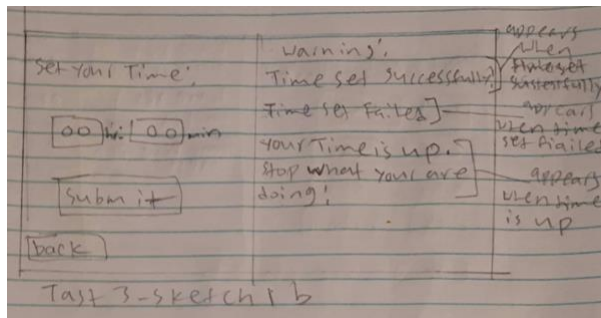 Set Your Time:
00 hr: 00 min
Submit
back
Warning!
Time set Successfully!
Time set Failed
Your Time is up.
Stop what your are
doing!
appears
when
time set
sucessfully
appears
when time
set fiailed
appears
when time
is up
Tast 3-sketch 1 b